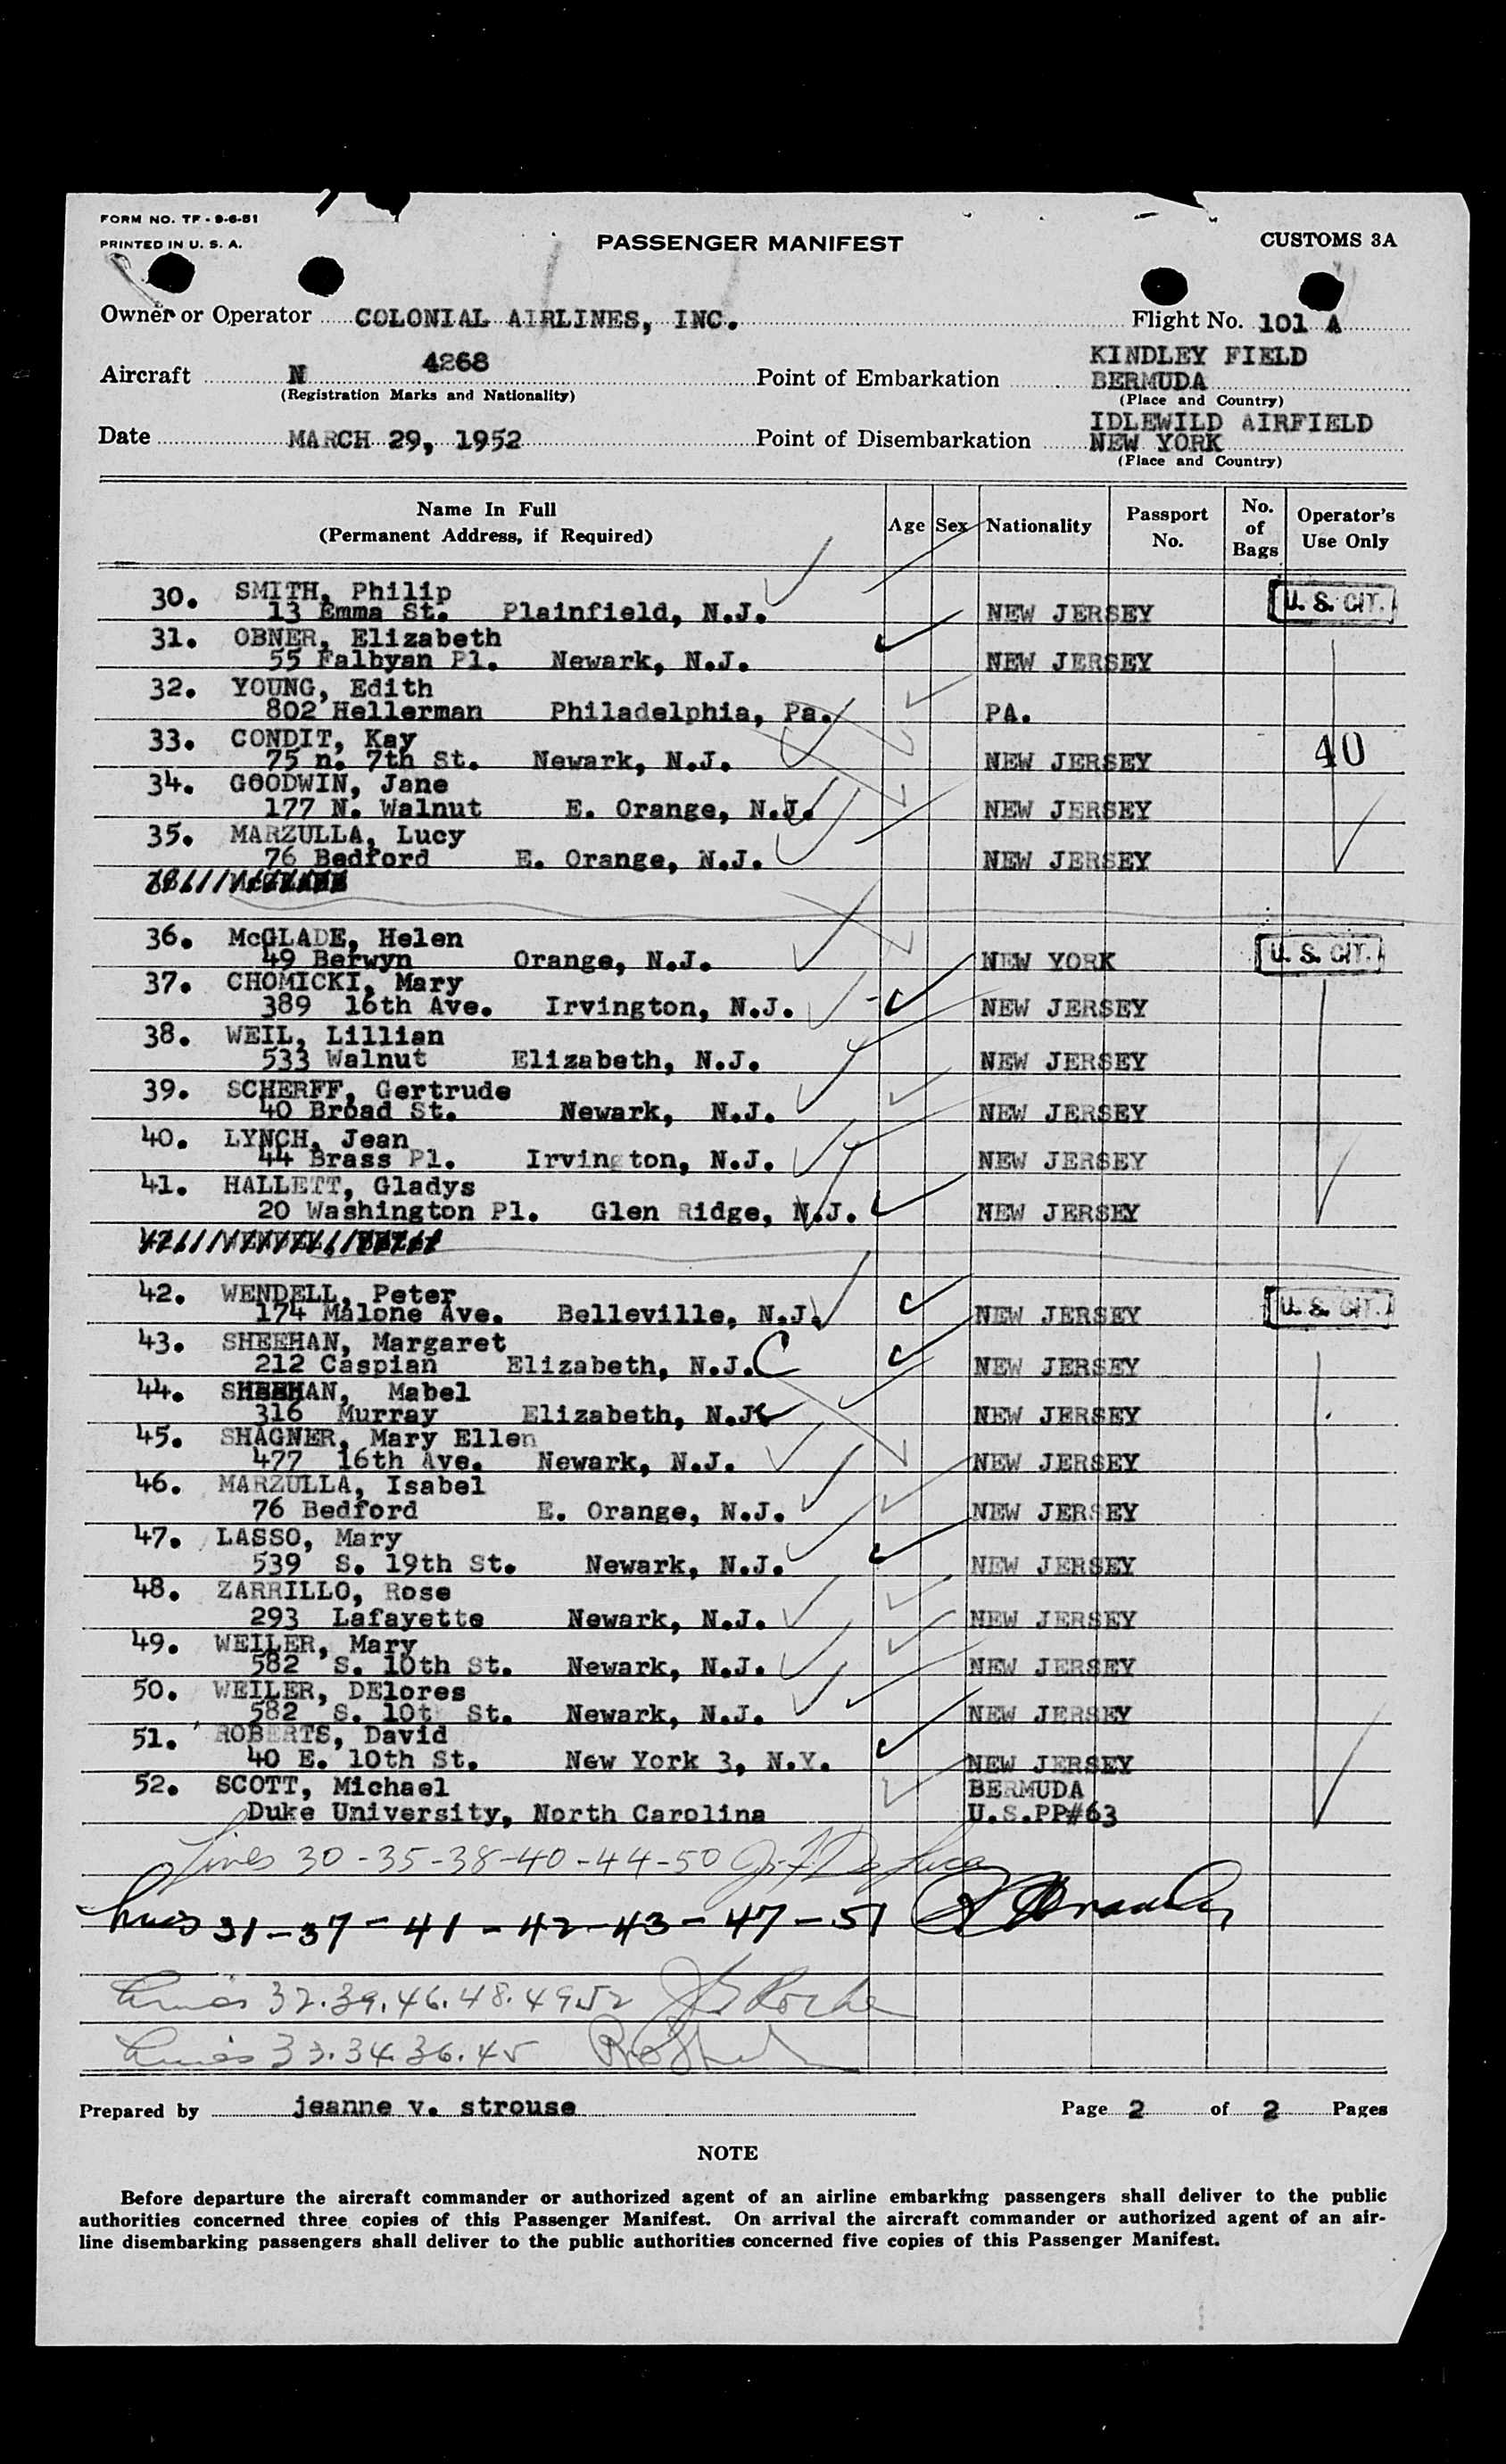 FORM NO. TF - 9-6-51
PRINTED IN U. S. A.
PASSENGER MANIFEST
CUSTOMS 3A
Owner or Operator COLONIAL AIRLINES, INC. Flight No. 101 A
KINDLEY FIELD
Aircraft N 4268 Point of Embarkation BERMUDA
(Registration Marks and Nationality) (Place and Country)
IDLEWILD AIRFIELD
Date MARCH 29, 1952 Point of Disembarkation NEW YORK
(Place and Country)
Name In Full
(Permanent Address, if Required)
Age Sex Nationality Passport No. No. of Bags Operator's Use Only
30. SMITH, Philip U. S. CIT.
13 Emma St. Plainfield, N.J. NEW JERSEY
31. OBNER, Elizabeth
55 Falbyan Pl. Newark, N.J. NEW JERSEY
32. YOUNG, Edith
802 Hellerman Philadelphia, Pa. PA.
33. CONDIT, Kay 40
75 n. 7th St. Newark, N.J. NEW JERSEY
34. GOODWIN, Jane
177 N. Walnut E. Orange, N.J. NEW JERSEY
35. MARZULLA, Lucy
76 Bedford E. Orange, N.J. NEW JERSEY
36. McGLADE, Helen U. S. CIT.
49 Berwyn Orange, N.J. NEW YORK
37. CHOMICKI, Mary
389 16th Ave. Irvington, N.J. NEW JERSEY
38. WEIL, Lillian
533 Walnut Elizabeth, N.J. NEW JERSEY
39. SCHERFF, Gertrude
40 Broad St. Newark, N.J. NEW JERSEY
40. LYNCH, Jean
44 Brass Pl. Irvington, N.J. NEW JERSEY
41. HALLETT, Gladys
20 Washington Pl. Glen Ridge, N.J. NEW JERSEY
42. WENDELL, Peter U. S. CIT.
174 Malone Ave. Belleville, N.J. NEW JERSEY
43. SHEEHAN, Margaret
212 Caspian Elizabeth, N.J. NEW JERSEY
44. SHEEHAN, Mabel
316 Murray Elizabeth, N.J. NEW JERSEY
45. SHAGNER, Mary Ellen
477 16th Ave. Newark, N.J. NEW JERSEY
46. MARZULLA, Isabel
76 Bedford E. Orange, N.J. NEW JERSEY
47. LASSO, Mary
539 S. 19th St. Newark, N.J. NEW JERSEY
48. ZARRILLO, Rose
293 Lafayette Newark, N.J. NEW JERSEY
49. WEILER, Mary
582 S. 10th St. Newark, N.J. NEW JERSEY
50. WEILER, DElores
582 S. 10t St. Newark, N.J. NEW JERSEY
51. ROBERTS, David
40 E. 10th St. New York 3, N.Y. NEW JERSEY
52. SCOTT, Michael BERMUDA
Duke University, North Carolina U.S.PP#63
Lines 30-35-38-40-44-50
Lines 31-37-41-42-43-47-51
Lines 32.39.46.48.49 52
Lines 33.34.36.45
Prepared by jeanne v. strouse Page 2 of 2 Pages
NOTE
Before departure the aircraft commander or authorized agent of an airline embarking passengers shall deliver to the public
authorities concerned three copies of this Passenger Manifest. On arrival the aircraft commander or authorized agent of an air-
line disembarking passengers shall deliver to the public authorities concerned five copies of this Passenger Manifest.